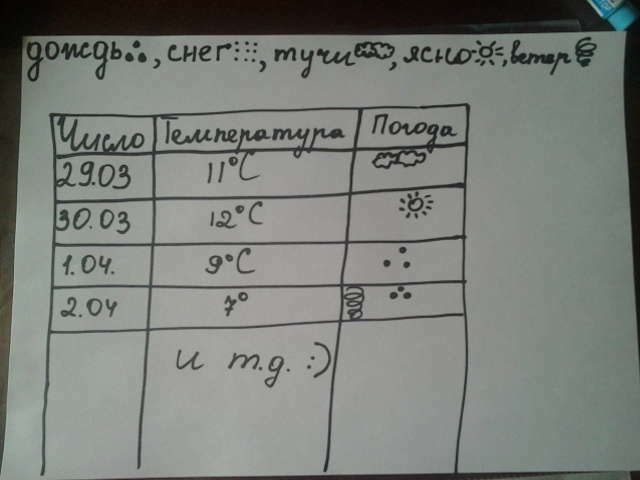 дождь, снег, тучи, ясно, ветер
Число Температура Погода
29.03 11°C
30.03 12°C
1.04. 9°C
2.04 7°
и т.д. :)